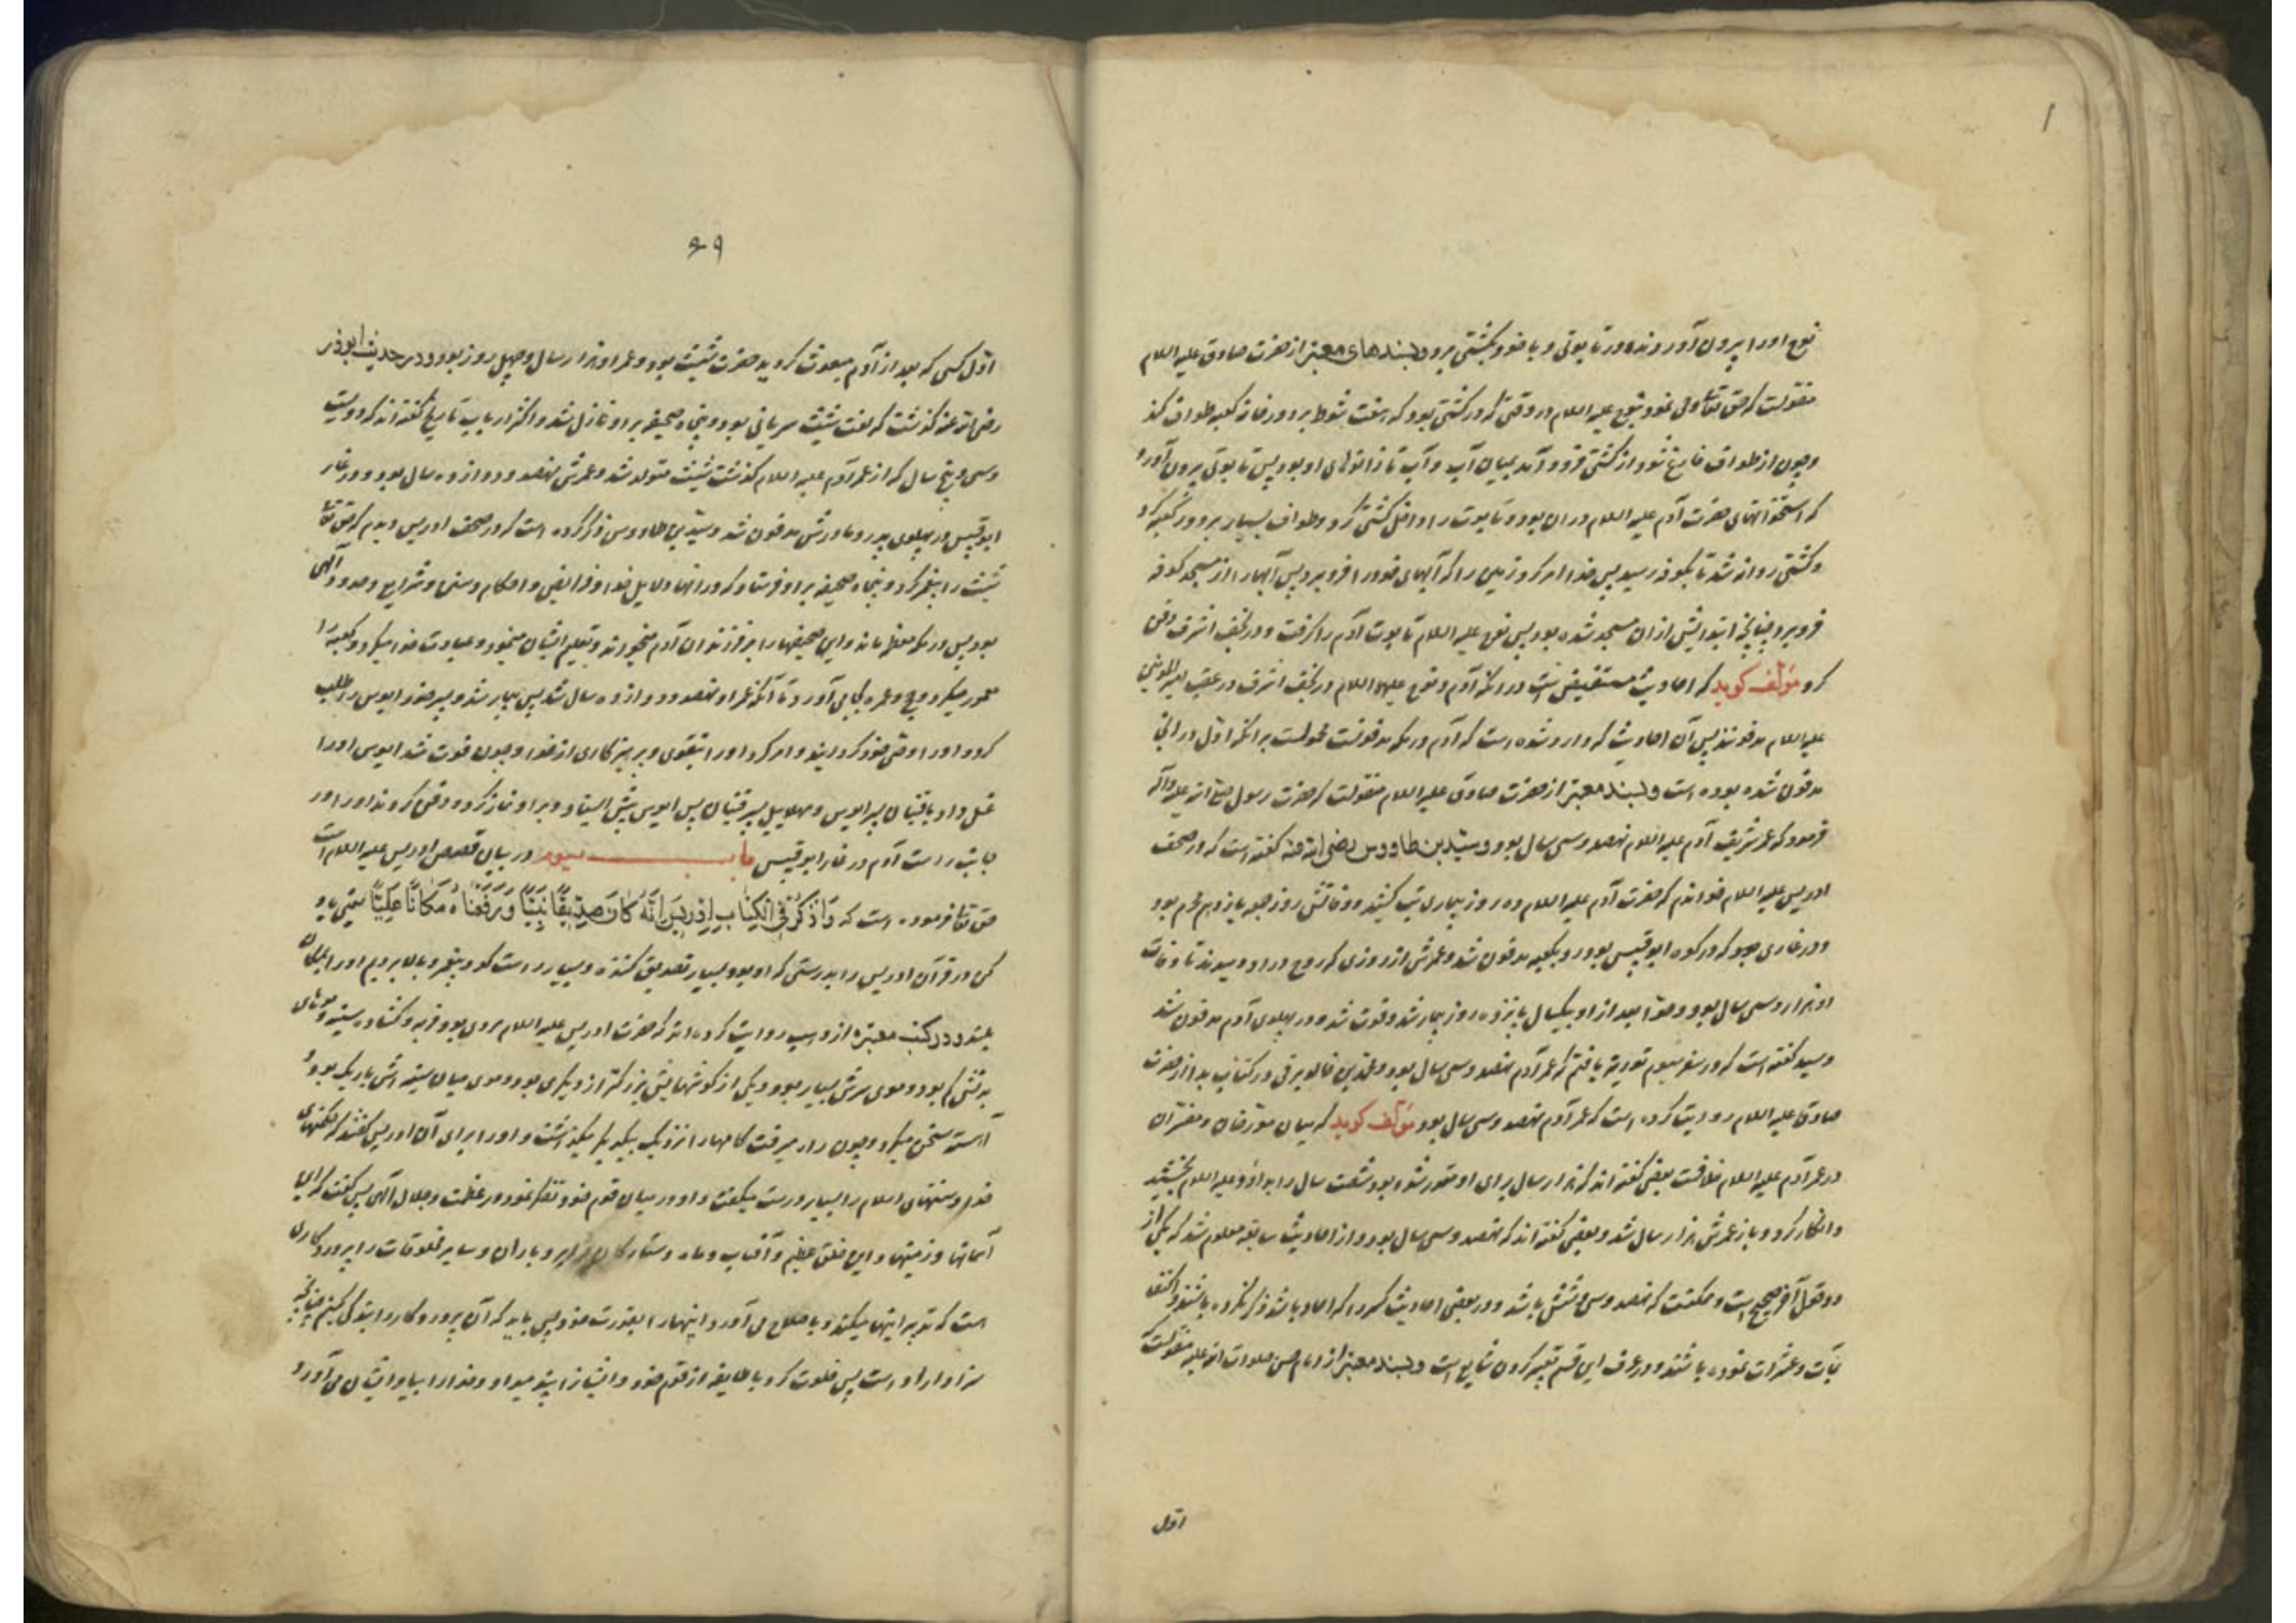 نوح اورا بیرون آورند و در تابوتی و با خود بکشتی برد و بسندهای معتبر از حضرت صادق علیه السلام
منقولست که حق تعالی وحی نمود بنوح علیه السلام در وقتی که در کشتی بود که هفت شوط بر دور خانه کعبه طواف کند
و چون از طواف فارغ شود از کشتی فرود آمد بمیان آب و آب تا زانوهای او بود پس تابوتی بیرون آورد
که استخوانهای حضرت آدم علیه السلام در ان بود و تابوت را داخل کشتی کرد و طواف بسیار بر دور کعبه کرد
و کشتی روانه شد تا بکوفه رسید پس خدا امر کرد زمین را که آبهای خود را فرو برد پس آبها را از مسجد کوفه
فرو برد چنانچه ابتدایش از ان مسجد شده بود پس نوح علیه السلام تابوت آدم را گرفت و در نجف اشرف دفن
کرد مؤلف کوید که احادیث مستفیض است در انکه آدم و نوح علیهما السلام در نجف اشرف در عقب امیرالمؤمنین
علیه السلام مدفونند پس آن احادیث که وارد شده است که آدم در مکه مدفونست محمولست بر انکه اول در انجا
مدفون شده بوده است و بسند معتبر از حضرت صادق علیه السلام منقولست که حضرت رسول صلی الله علیه وآله
فرمود که عمر شریف آدم علیه السلام نهصد و سی سال بود و سید بن طاووس رضی الله عنه گفته است که در صحف
ادریس علیه السلام خواندم که حضرت آدم علیه السلام ده روز بیماری تب کشید و وفاتش روز جمعه یازدهم محرم بود
و در غاری که در کوه ابوقبیس بود رو بکعبه مدفون شد و عمرش از روزی که روح در او دمیدند تا وفات
او هزار و سی سال بود و حوا بعد از او بیکسال پانزده روز بیمار شد و فوت شد و در پهلوی آدم مدفون شد
و سید گفته است که در سفر سیوم توریة یافتم که عمر آدم نهصد و سی سال بود و محمد بن خالد برقی در کتاب بدا از حضرت
صادق علیه السلام روایت کرده است که عمر آدم نهصد و سی سال بود مؤلف کوید که میان مورخان و مفسران
در عمر آدم علیه السلام خلافست بعضی گفته اند که هزار سال برای او مقرر شده بود شصت سال را بداوود علیه السلام بخشید
و انکار کرد و باز عمرش هزار سال شد و بعضی گفته اند که نهصد و سی سال بود و از احادیث سابقه معلوم شد که یکی از
دو قول آخر صحیح است و ممکنست که نهصد و سی و شش باشد و در بعضی احادیث که احاد باشد ذکر نکرده باشند و اکتفا
بمآت و عشرات نموده باشند و در عرف این قسم تعبیر کردن شایع است و بسند معتبر از امام حسن صلوات الله علیه منقولست
اول
۶۹
اول کسی که بعد از آدم مبعوث گردید حضرت شیث بود و عمر او هزار سال و چهل روز بود و در حدیث ابوذر
رضی الله عنه گذشت که لغت شیث سریانی بود و پنجاه صحیفه بر او نازل شد و اکثر ارباب تاریخ گفته اند که دویست
و سی و پنج سال که از عمر آدم علیه السلام گذشت شیث متولد شد و عمرش نهصد و دوازده سال بود و در غار
ابوقبیس در پهلوی پدر و مادرش مدفون شد و سید بن طاووس ذکر کرده است که در صحف ادریس دیدم که حق تعالی
شیث را پیغمبر کرد و پنجاه صحیفه بر او فرستاد که در انها دلایل خدا و فرایض و احکام و سنن و شرایع و حدود الهی
بود پس در مکه معظمه ماند و این صحیفها را بر فرزندان آدم میخواند و تعلیم ایشان مینمود و عبادت خدا میکرد و کعبه را
معمور میکرد و حج و عمره بجا می آورد تا آنکه عمر او نهصد و دوازده سال شد پس بیمار شد و پسر خود ایوس را طلب
کرد و او را وصی خود گردانید و امر کرد او را بتقوی و پرهیزکاری از خدا و چون فوت شد ایوس اورا
غسل داد با قینان پسر ایوس و مهلاییل پسر قینان پس ایوس پیش ایستاد و بر او نماز کرد و دفن کردند او را در
جانب راست آدم در غار ابوقبیس باب سیوم در بیان قصص ادریس علیه السلام است
حق تعالی فرموده است که وَاذْكُرْ فِي الْكِتَابِ إِدْرِيسَ إِنَّهُ كَانَ صِدِّيقًا نَبِيًّا وَرَفَعْنَاهُ مَكَانًا عَلِيًّا یعنی یاد
کن در قرآن ادریس را بدرستی که او بود بسیار تصدیق کننده و بسیار راست کو و پیغمبر و بالا بردیم او را بمکان
بلند و در کتب معتبره از وهب روایت کرده اند که حضرت ادریس علیه السلام مردی بود فربه و گشاده سینه و موهای
بدنش کم بود و موی سرش بسیار بود و یکی از گوشهایش بزرگتر از دیگری بود و موی میان سینه اش باریک بود و
آهسته سخن میکرد و چون راه میرفت گامها را نزدیک بیکدیگر میگذاشت و اورا برای آن ادریس گفتند که حکمتهای
خدا و سنتهای اسلام را بسیار درست میگفت و او در میان قوم خود تفکر نمود در عظمت و جلال الهی پس گفت که برای
آسمانها و زمینها و این خلق عظیم و آفتاب و ماه و ستارگان و ابر و باران و سایر مخلوقات را پروردگاری
هست که تدبیر اینها میکند و باصلاح می آورد اینها را بقدرت خود پس باید که آن پروردگار را بندگی کنیم چنانچه
سزاوار او است پس خلوت کرد با طایفه از قوم خود و ایشانرا پند میداد و خدا را بیاد ایشان می آورد